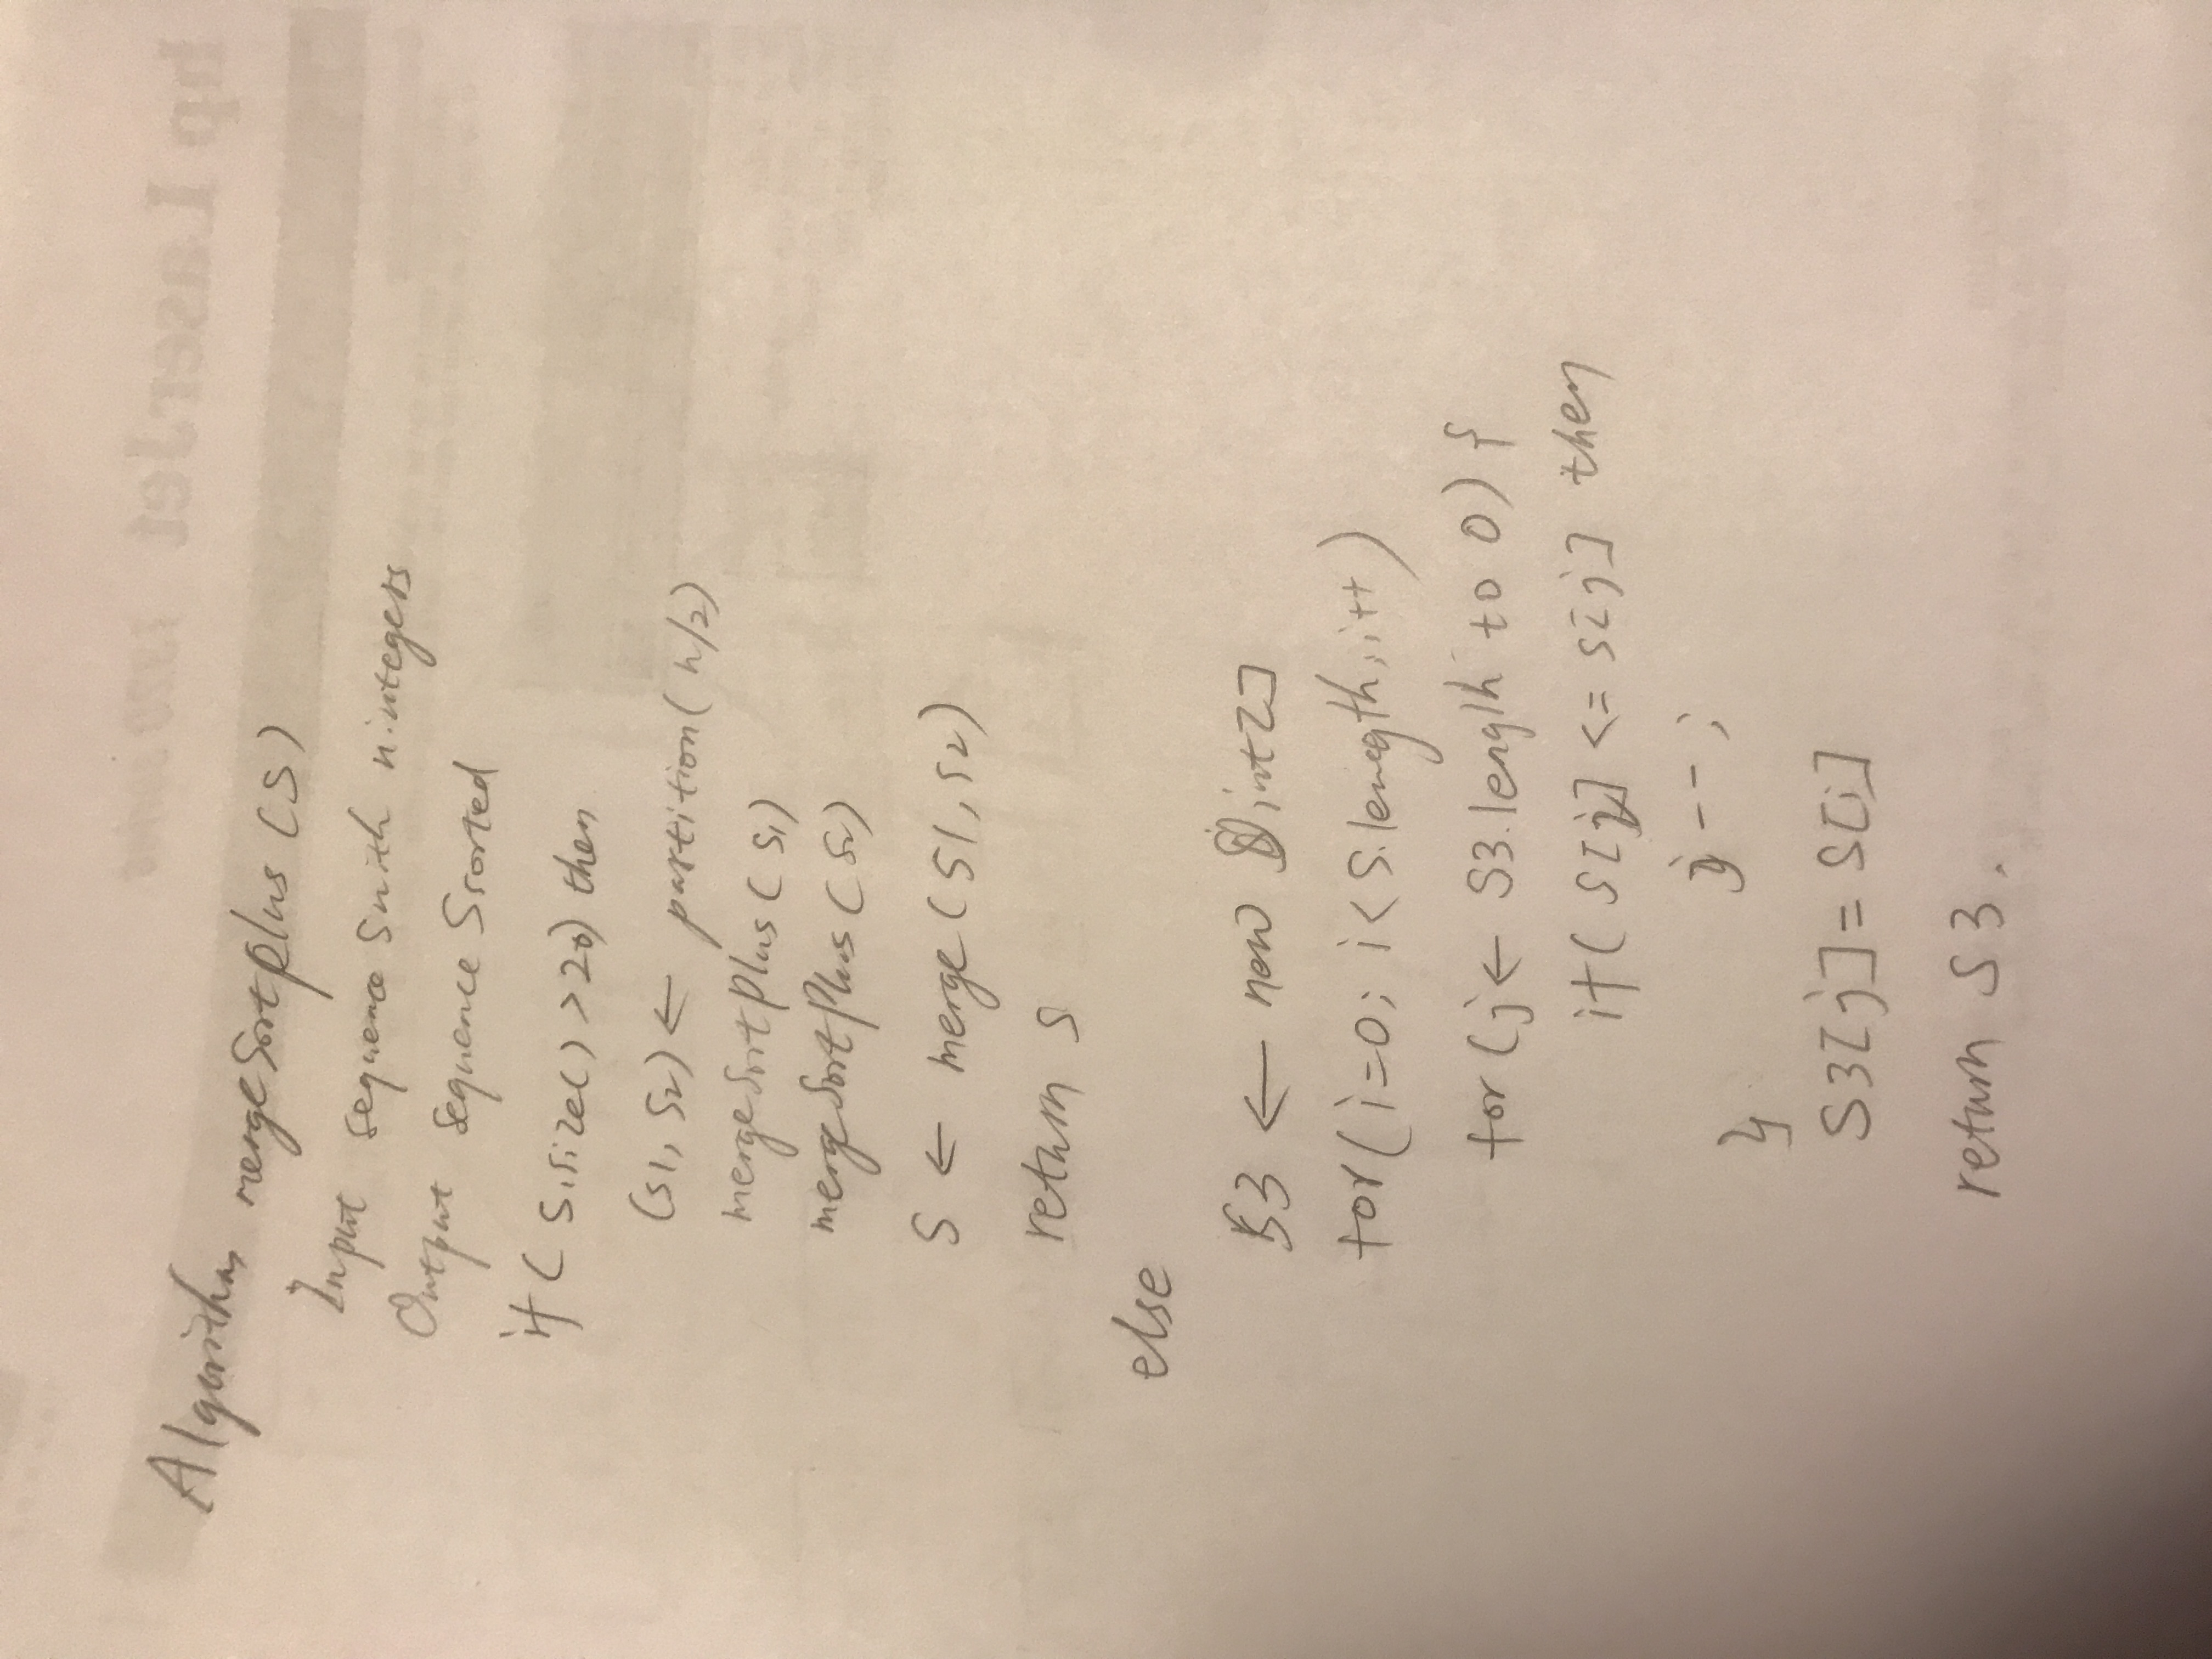 hp LaserJet 1320 series
Algorithm mergeSortPlus (S)
Input sequence S with n integers
Output sequence S sorted
if ( S.size() > 20) then
(S1, S2) ← partition( n/2)
mergeSortPlus ( S1)
mergeSortPlus ( S2)
S ← merge ( S1, S2)
return S
else
S3 ← new int[]
for( i=0; i< S.length; i++ )
for (j ← S3.length to 0) {
if( S[j] <= S[j] then
j -- ;
}
S3[j] = S[i]
return S3.